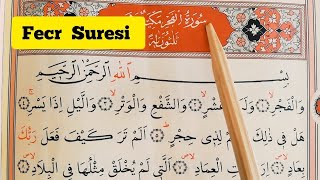 Fecr Suresi
سُورَةُ الْفَجْرِ مَكِّيَّةٌ
ثَلٰثُونَ اٰيَةً
بِسْمِ اللّٰهِ الرَّحْمٰنِ الرَّحِيمِ
وَالْفَجْرِۙ وَلَيَالٍ عَشْرٍۙ وَالشَّفْعِ وَالْوَتْرِۙ وَالَّيْلِ اِذَا يَسْرِۚ
هَلْ فٖى ذٰلِكَ قَسَمٌ لِذٖى حِجْرٍؕ اَلَمْ تَرَ كَيْفَ فَعَلَ رَبُّكَ
بِعَادٍۙ اِرَمَ ذَاتِ الْعِمَادِۙ اَلَّتٖى لَمْ يُخْلَقْ مِثْلُهَا فِى الْبِلَادِۙ